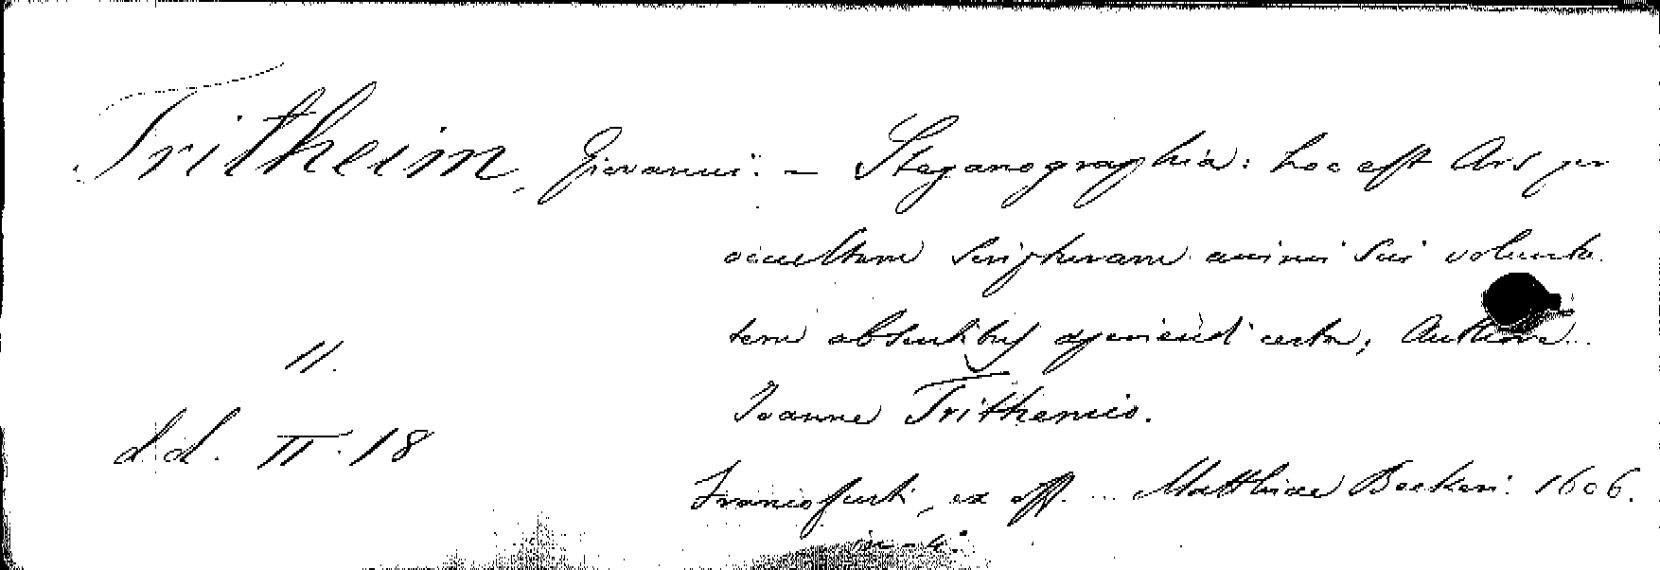 Tritheim, Giovanni. – Steganographia: hoc est Ars per
occultam scripturam animi sui volunta-
tem absentibus aperiendi certa; Authore...
Ioanne Trithemio.
11.
d.d. II. 18
Francofurti, ex off. ... Matthiae Beckeri. 1606.
in-4°.